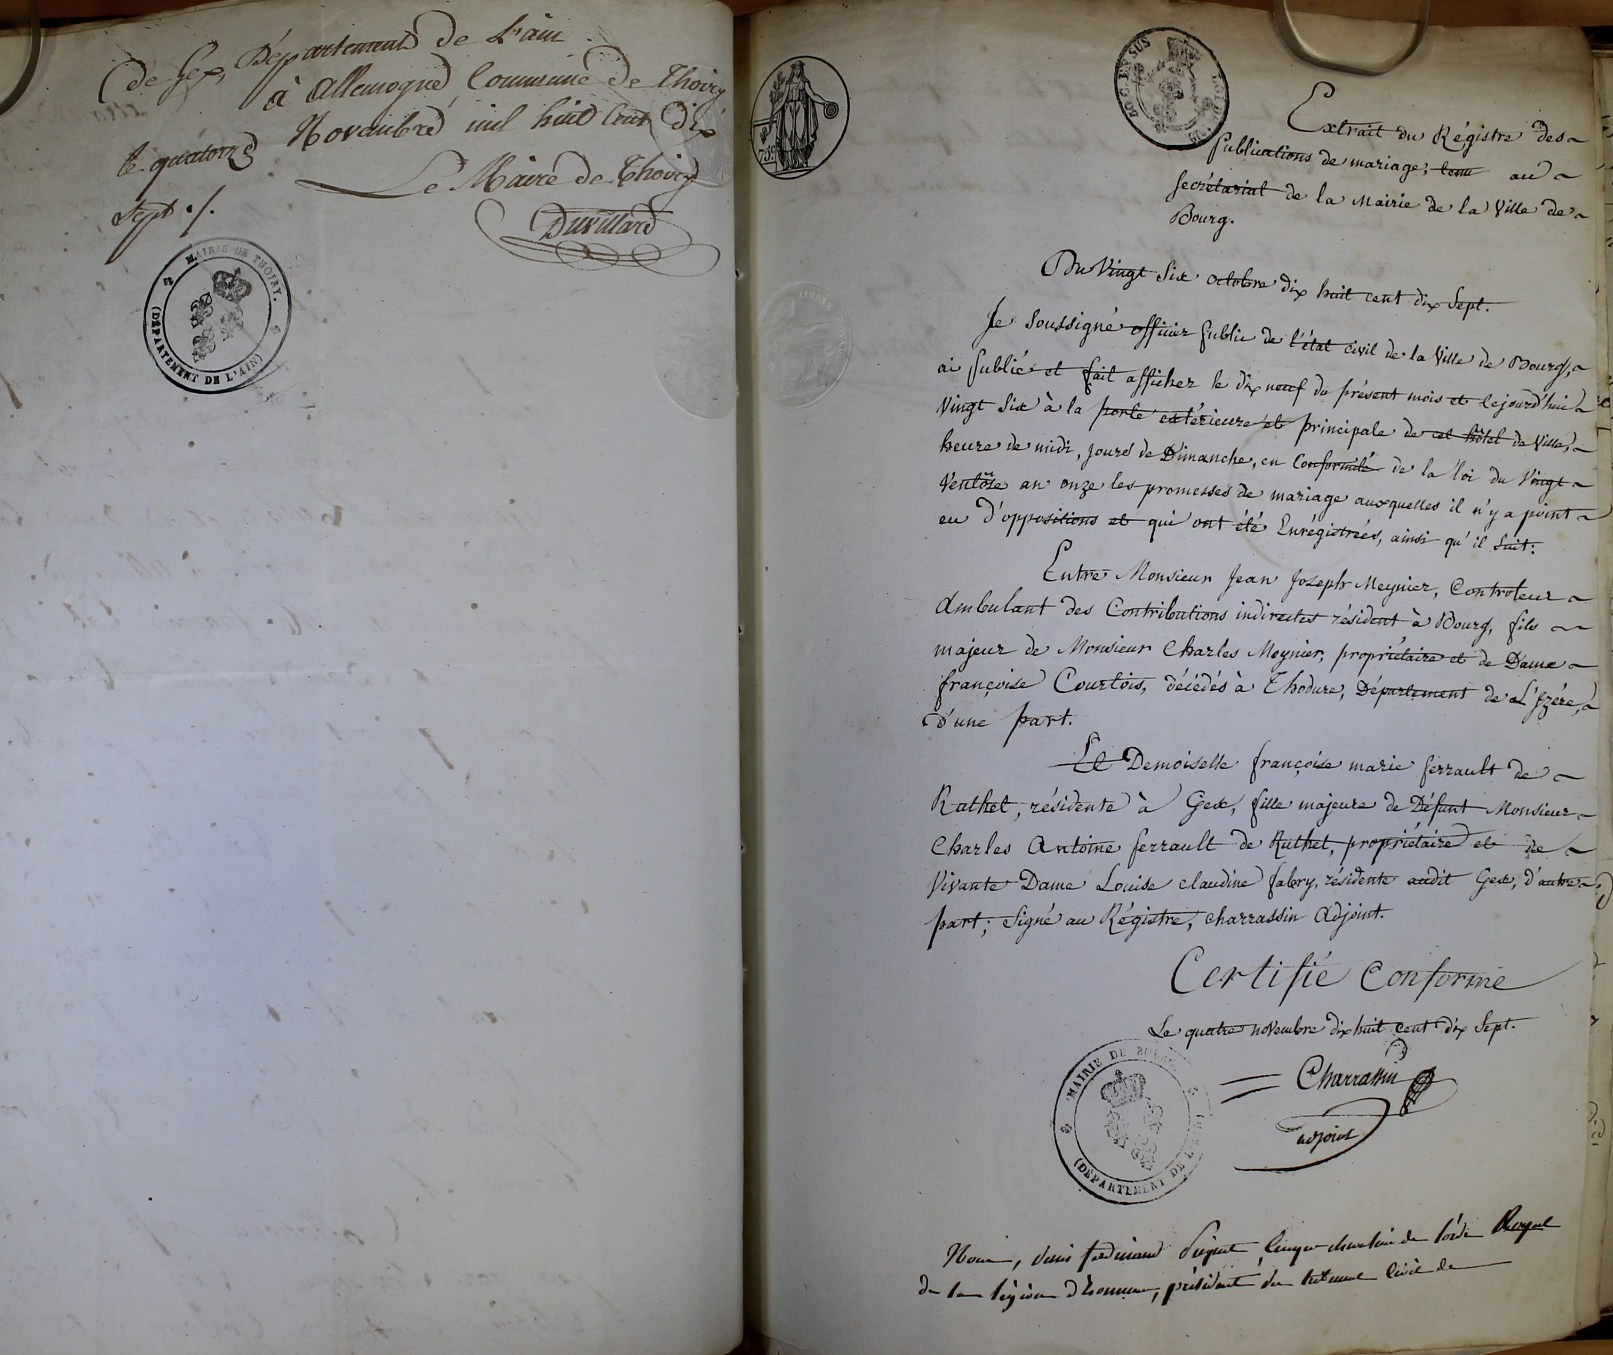 de Gex, Département de l'ain
à allemogne Commune de Thoiry
le quatorze Novembre mil huit Cent dix
Sept ./.
Le Maire de Thoiry
Duvillard
MAIRIE DE THOIRY.
(DÉPARTEMENT DE L'AIN)
75c
EN SUS
Extrait du Régistre des
publications de mariage, tenu au
secrétariat de la Mairie de la Ville de
Bourg.
Du Vingt Six octobre dix huit cent dix Sept.
Je Soussigné officier public de l'état civil de la Ville de Bourg,
ai publié et fait afficher le dix neuf du présent mois et cejourd'hui
Vingt Six à la porte extérieure et principale de cet hôtel de Ville,
heure de midi, jours de Dimanche, en Conformité de la loi du Vingt
Ventôse an onze les promesses de mariage auxquelles il n'y a point
eu d'oppositions et qui ont été Enrégistrées, ainsi qu'il Suit:
Entre Monsieur Jean Joseph Meynier, Controleur
Ambulant des Contributions indirectes résident à Bourg, fils
majeur de Monsieur Charles Meynier, propriétaire et de Dame
françoise Courtois, décédés à Thodure, Département de L'Izére,
D'une part.
Et Demoiselle françoise marie ferrault de
Ruthet, résidente à Gex, fille majeure de Défunt Monsieur
Charles Antoine ferrault de Ruthet, propriétaire et de
Vivante Dame Louise claudine fabry, résidente audit Gex, d'autre
part; Signé au Régistre, charrassin Adjoint.
Certifié Conforme
Le quatre novembre dix huit cent dix Sept.
Charrassin
adjoint
MAIRIE DE BOURG
(DÉPARTEMENT DE L'AIN)
Nous, ferdinand chevalier de l'ordre Royal
de la légion d'honneur, président du tribunal Civil de